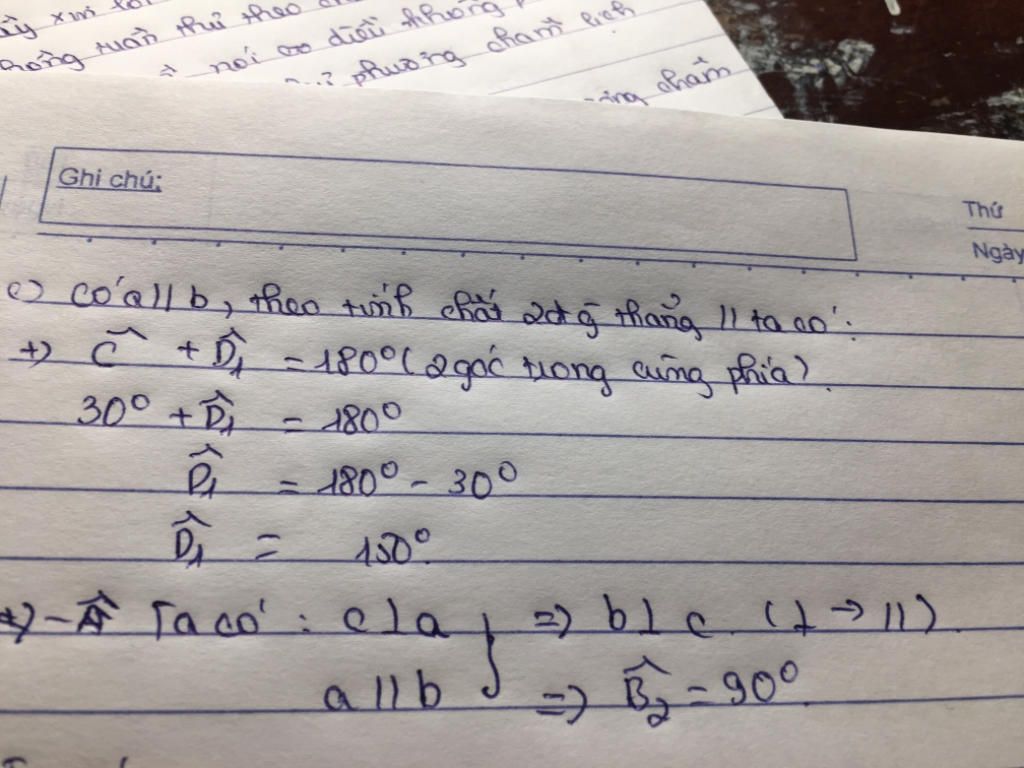 ấy
không tuân thủ theo
⇒ nói
điều không
phương châm lịch
châm
Ghi chú:
Thứ
Ngày
c) có a // b, theo tính chất 2 đg thẳng // ta có:
+) Ĉ + D̂₁ = 180° (2 góc trong cùng phía)
30° + D̂₁ = 180°
D̂₁ = 180° - 30°
D̂₁ = 150°.
+) - Ta có: c ⊥ a } ⇒ b ⊥ c. (⊥ → //)
a // b ⇒ B̂₂ = 90°.